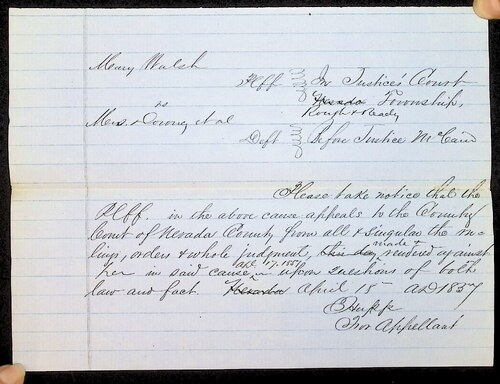 Mary Walsh
Plff. In Justices Court
vs Nevada Township,
Rough & Ready
Mrs. Downey et al
Deft Before Justice McCain
Please take notice that the
Plff. in the above cause appeals to the County
Court of Nevada County from all & singular the ru-
lings, orders & whole judgment, this day made & rendered against
her in said cause, upon questions of both
law and fact. April 15 AD 1857
For Appellant